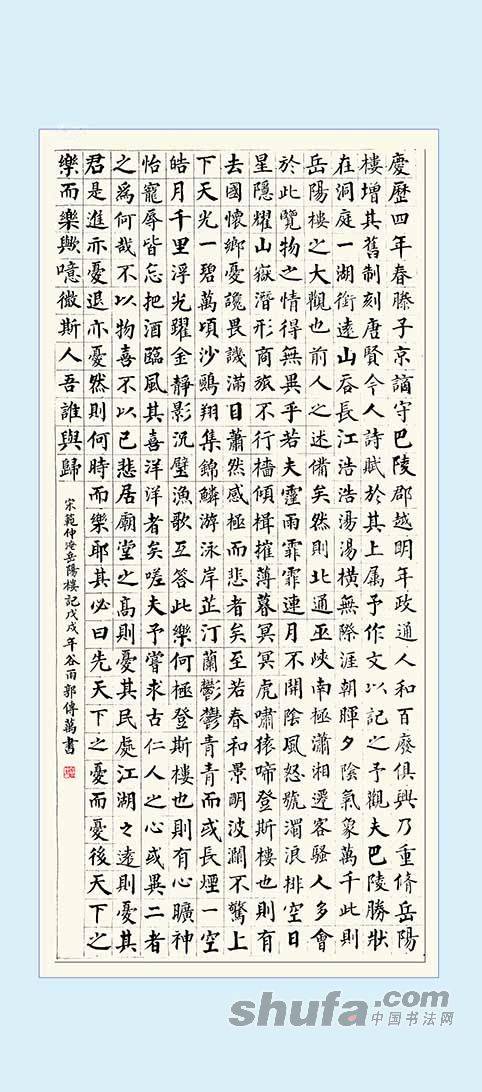 慶歷四年春滕子京謫守巴陵郡越明年政通人和百廢俱興乃重脩岳陽
樓增其舊制刻唐賢今人詩賦於其上属予作文以記之予觀夫巴陵勝狀
在洞庭一湖銜遠山吞長江浩浩湯湯橫無際涯朝暉夕陰氣象萬千此則
岳陽樓之大觀也前人之述備矣然則北通巫峽南極瀟湘遷客騷人多會
於此覽物之情得無異乎若夫霪雨霏霏連月不開陰風怒號濁浪排空日
星隱耀山嶽潛形商旅不行檣傾楫摧薄暮冥冥虎嘯猿啼登斯樓也則有
去國懷鄉憂讒畏譏滿目蕭然感極而悲者矣至若春和景明波瀾不驚上
下天光一碧萬頃沙鷗翔集錦鱗游泳岸芷汀蘭鬱鬱青青而或長煙一空
皓月千里浮光躍金靜影沉璧漁歌互答此樂何極登斯樓也則有心曠神
怡寵辱皆忘把酒臨風其喜洋洋者矣嗟夫予嘗求古仁人之心或異二者
之為何哉不以物喜不以己悲居廟堂之高則憂其民處江湖之遠則憂其
君是進亦憂退亦憂然則何時而樂耶其必曰先天下之憂而憂後天下之
樂而樂歟噫微斯人吾誰與歸
宋範仲淹岳陽樓記戊戌年谷雨郭傳萬書
shufa.com
中国书法网